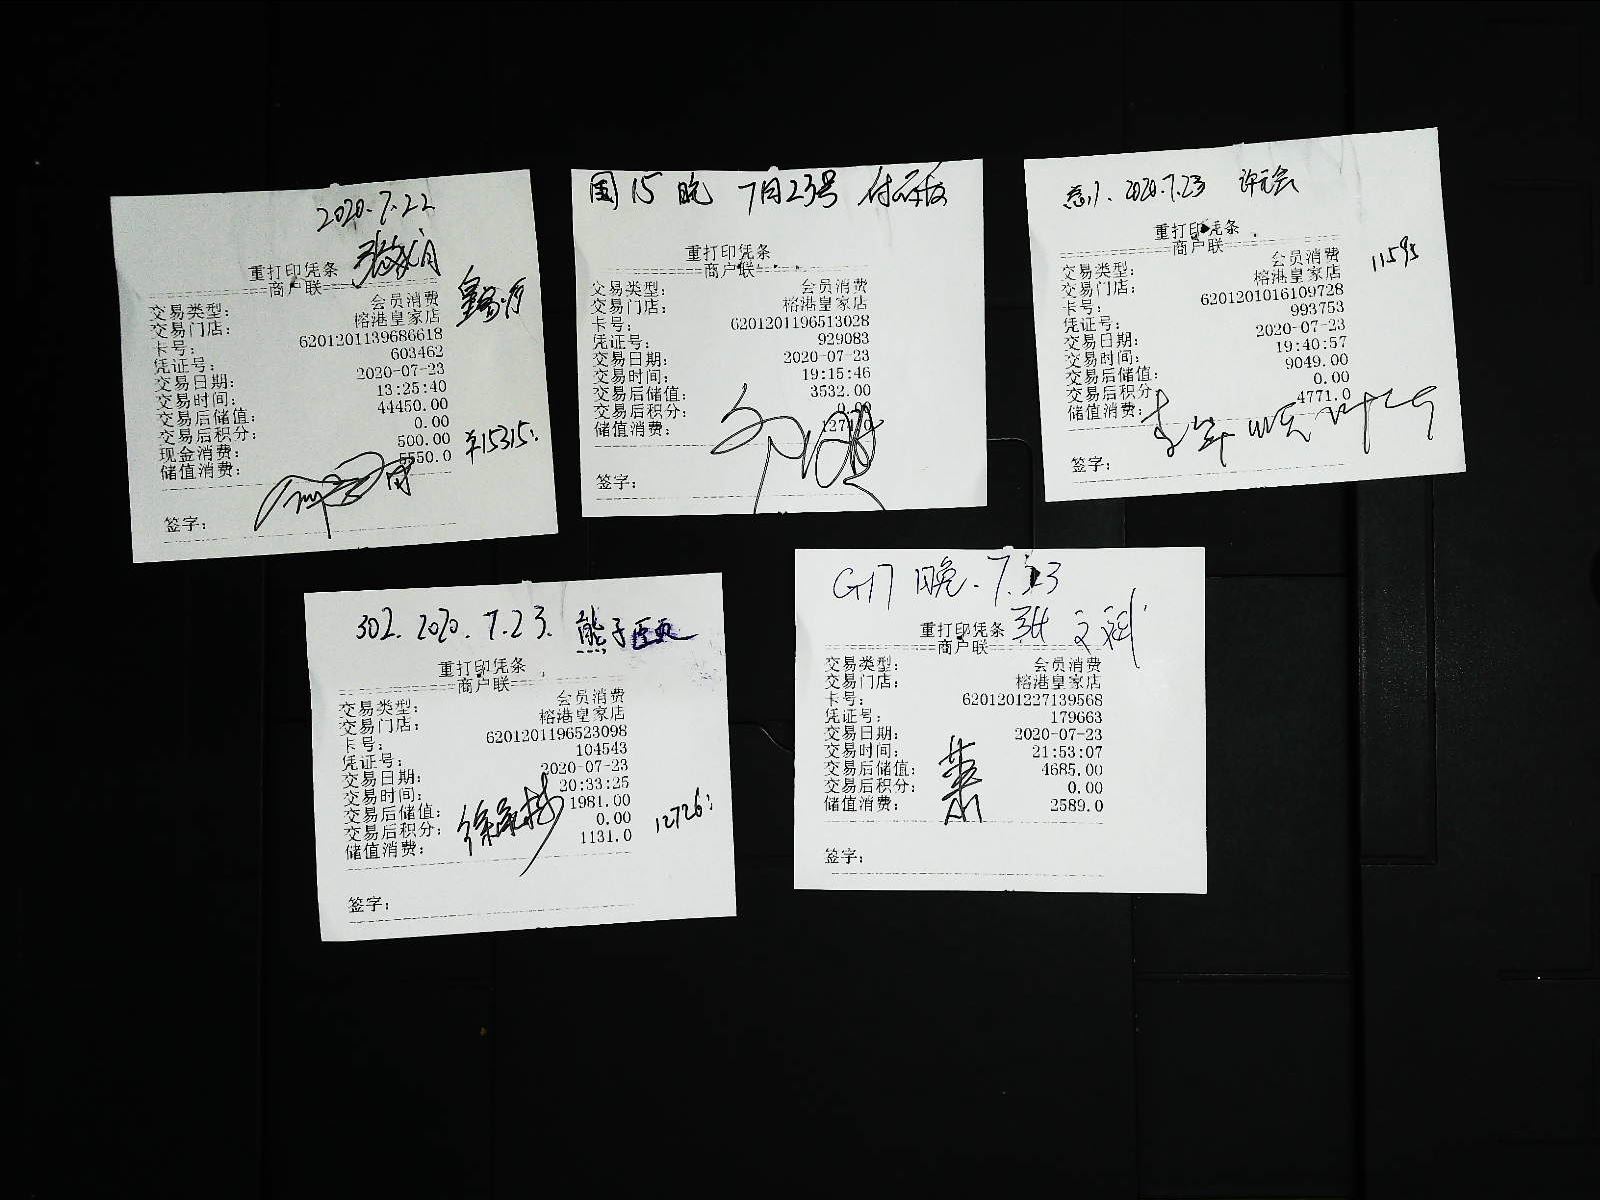 2020.7.22
重打印凭条
商户联
交易类型： 会员消费
交易门店： 榕港皇家店
卡号： 6201201139686618
凭证号： 603462
交易日期： 2020-07-23
交易时间： 13:25:40
交易后储值： 44450.00
交易后积分： 0.00
现金消费： 500.00
储值消费： 5550.0
¥15315:
签字：
国15 晚 7月23号
重打印凭条
商户联
交易类型： 会员消费
交易门店： 榕港皇家店
卡号： 6201201196513028
凭证号： 929083
交易日期： 2020-07-23
交易时间： 19:15:46
交易后储值： 3532.00
交易后积分： 0.00
储值消费：
签字：
2020.7.23 许元会
重打印凭条
商户联
11595
交易类型： 会员消费
交易门店： 榕港皇家店
卡号： 6201201016109728
凭证号： 993753
交易日期： 2020-07-23
交易时间： 19:40:57
交易后储值： 9049.00
交易后积分： 0.00
储值消费： 4771.0
签字：
302. 2020. 7.23. 熊子
重打印凭条
商户联
交易类型： 会员消费
交易门店： 榕港皇家店
卡号： 6201201196523098
凭证号： 104543
交易日期： 2020-07-23
交易时间： 20:33:25
交易后储值： 1981.00
交易后积分： 0.00
储值消费： 1131.0
12726:
签字：
G17 晚. 7.23
张文科
重打印凭条
商户联
交易类型： 会员消费
交易门店： 榕港皇家店
卡号： 6201201227139568
凭证号： 179663
交易日期： 2020-07-23
交易时间： 21:53:07
交易后储值： 4685.00
交易后积分： 0.00
储值消费： 2589.0
签字：